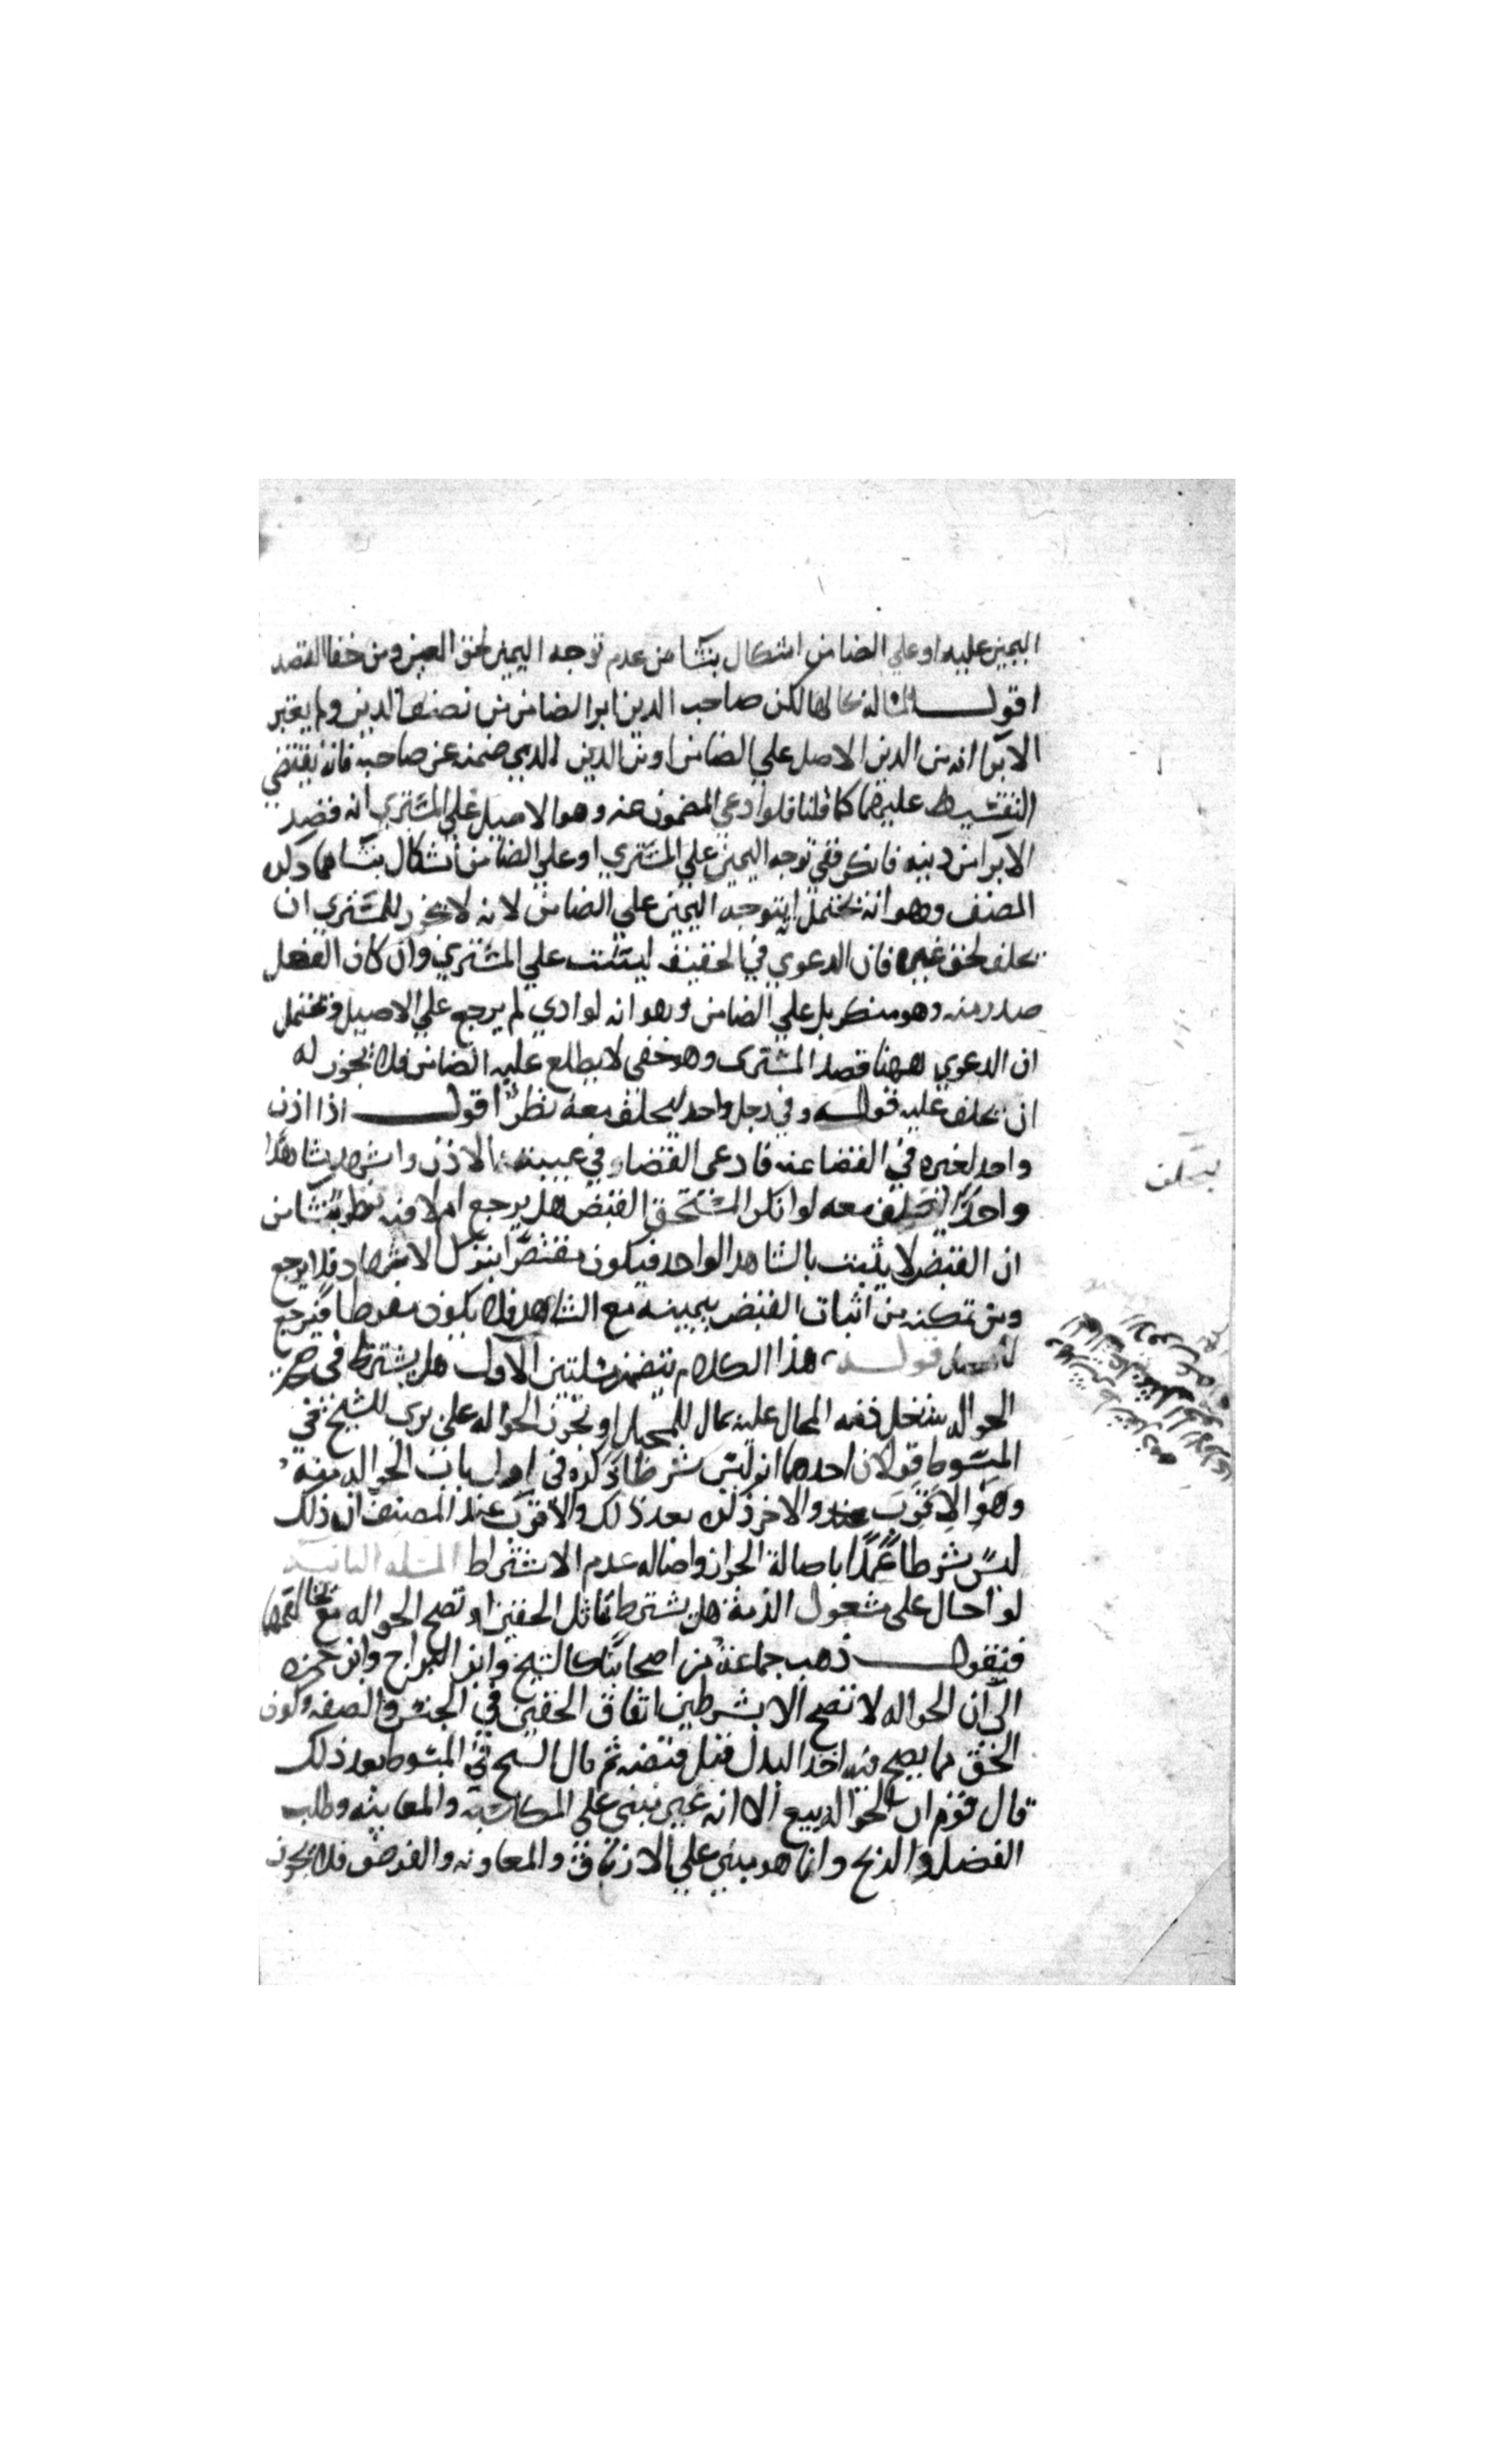 اليمين عليه او علي الضامن اشكال ينشا من عدم توجه اليمين لحق الغير ومن خفا القصد
اقول المسالة بحالها لكن صاحب الدين ابرا الضامن من نصف الدين ولم يعتبر
الابرا انه من الدين الاصل علي الضامن او من الدين الذي ضمنه عن صاحبه فانه يقتضي
التقسيط عليهما كما قلنا فلو ادعي المضمون عنه وهو الاصيل علي المشتري انه قصد
الابرا من دينه فانكر ففي توجه اليمين علي المشتري او علي الضامن اشكال ينشا مما ذكره
المصنف وهو انه يحتمل ان يتوجه اليمين علي الضامن لانه لا يجوز للمشتري ان
يحلف لحق غيره فان الدعوي في الحقيقة ليست علي المشتري وان كان الفعل
صدر منه وهو منكر بل علي الضامن وهو انه لو ادي لم يرجع علي الاصيل ويحتمل
ان الدعوي ههنا قصد المشترى وهو خفى لا يطلع عليه الضامن فلا يجوز له
ان يحلف عليه قوله وفي رجل واحد ليحلف معه نظر اقول اذا اذن
واحد لغيره في القضا عنه فادعى القضا وفي غيبته الاذن واشهد شاهدا
واحدا ليحلف معه لو انكر المستحق القبض هل يرجع ام لا فيه نظر ينشا من
ان القبض لا يثبت بالشاهد الواحد فيكون مقتصرا بترك الاشهاد فلا يرجع
ومن تمكنه من اثبات القبض بيمينه مع الشاهد فلا يكون مفرطا فيرجع
قوله هذا الكلام يتضمن مسئلتين الاولى هل يشترط في
الحواله شغل ذمه المحال عليه بمال للمحيل او تجوز الحواله على برى للشيخ في
المبسوط قولان احدهما انه ليس شرطا ذكره في اول باب الحواله منه
وهو الاقوى عنده والاخر ذكره بعد ذلك والاقوى عند المصنف ان ذلك
ليس شرطا عملا باصالة الجواز واصاله عدم الاشتراط المسئله الثانيه
لو احال على مشغول الذمة هل يشترط تماثل الحقين او تصح الحواله مع تخالفهما
فنقول ذهب جماعة من اصحابنا كالشيخ وابن البراج وابن حمزه
الى ان الحواله لا تصح الا بشرطين اتفاق الحقين في الجنس والصفه وكون
الحق مما يصح فيه اخذ البدل قبل قبضه ثم قال الشيخ في المبسوط بعد ذلك
قال قوم ان الحواله بيع الا انه غير مبني علي المكاسبة والمغابنه وطلب
الفضل والربح وانما هو مبني علي الارتفاق والمعاونه والقرض فلا يجوز
ليحلف